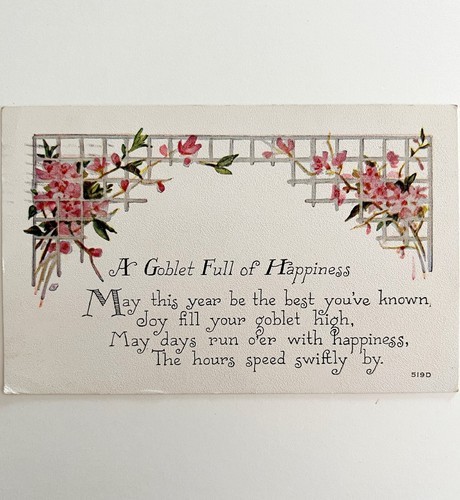 A Goblet Full of Happiness
May this year be the best you've known,
Joy fill your goblet high,
May days run o'er with happiness,
The hours speed swiftly by.
519D